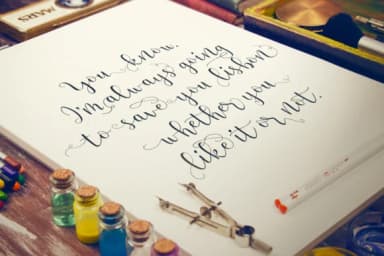 You know.
I'm always going
to save you lisbon
whether you
like it or not.